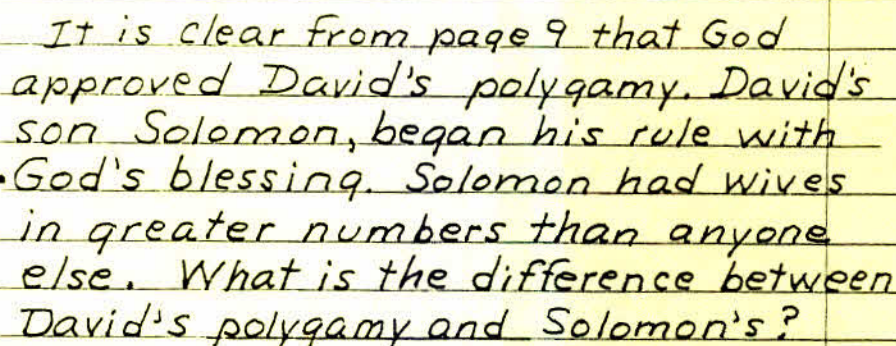 It is clear from page 9 that God
approved David's polygamy. David's
son Solomon, began his rule with
God's blessing. Solomon had wives
in greater numbers than anyone
else. What is the difference between
David's polygamy and Solomon's?